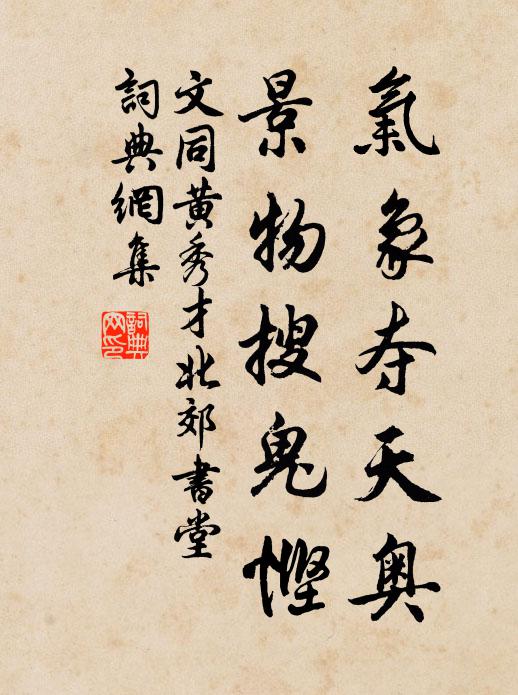 氣象夺天奥
景物搜鬼慳
文同黄秀才北郊書堂
詞典網集
詞典網印